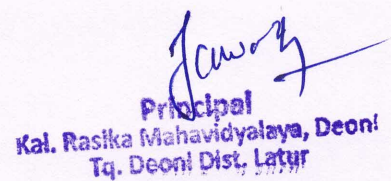 Principal
Kai. Rasika Mahavidyalaya, Deoni
Tq. Deoni Dist. Latur